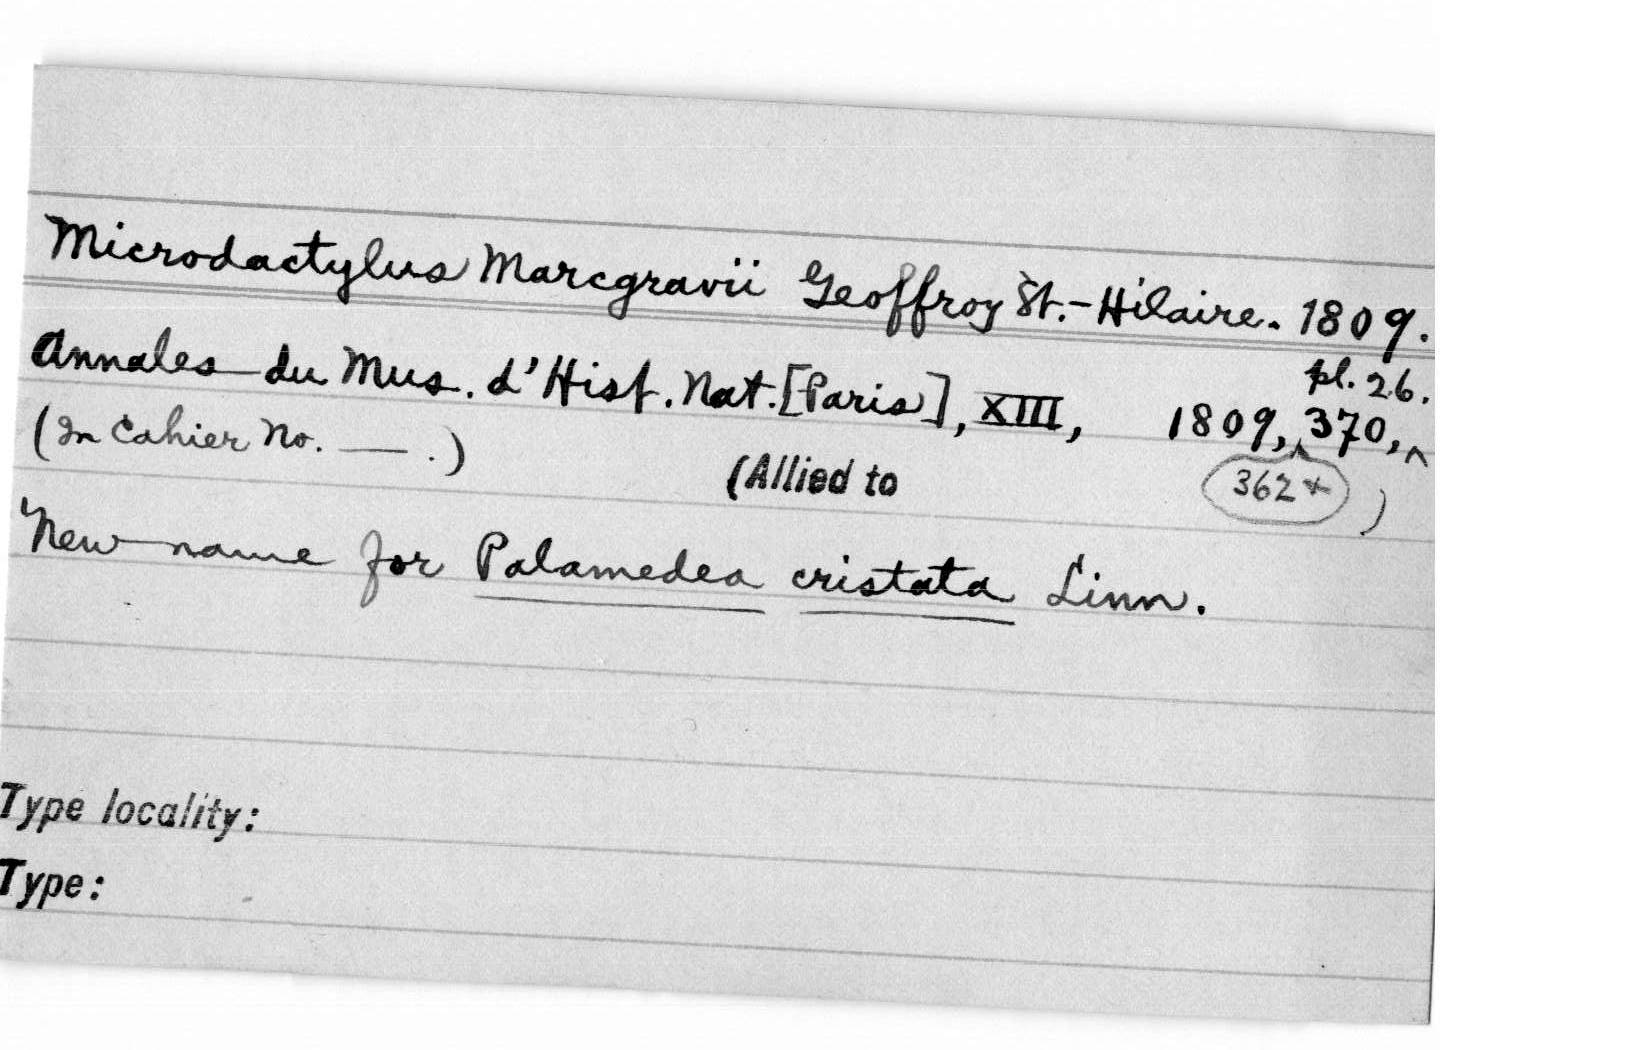 Microdactylus Marcgravii Geoffroy St.-Hilaire. 1809.
pl. 26.
Annales du Mus. d'Hist. Nat. [Paris], XIII, 1809, ^ 370, ^
(In Cahier No. — .)
362 +
(Allied to )
New name for Palamedea cristata Linn.
Type locality:
Type: